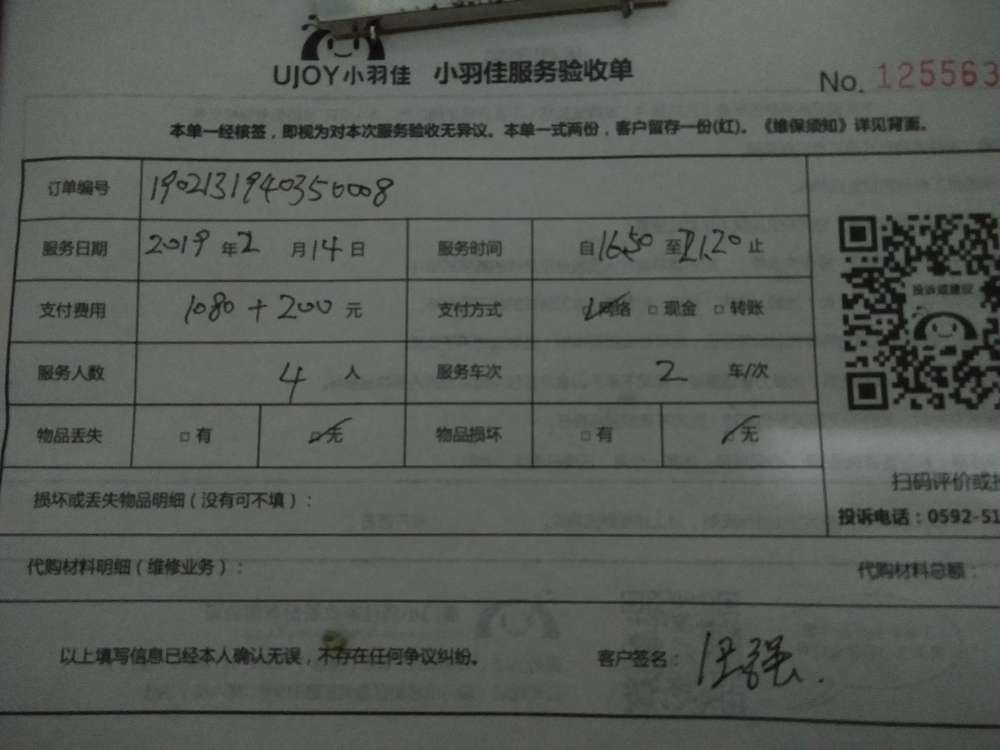 UJOY小羽佳 小羽佳服务验收单
No. 125563
本单一经核签，即视为对本次服务验收无异议。本单一式两份，客户留存一份(红)。《维保须知》详见背面。
订单编号 1902131940350008
服务日期 2019年2月14日 服务时间 自16.50至21.20止
支付费用 1080+200元 支付方式 □网络 □现金 □转账
投诉或建议
服务人数 4人 服务车次 2车/次
物品丢失 □有 □无 物品损坏 □有 □无
损坏或丢失物品明细（没有可不填）：
扫码评价或
投诉电话：0592-51
代购材料明细（维修业务）：
代购材料总额：
以上填写信息已经本人确认无误，不存在任何争议纠纷。 客户签名：